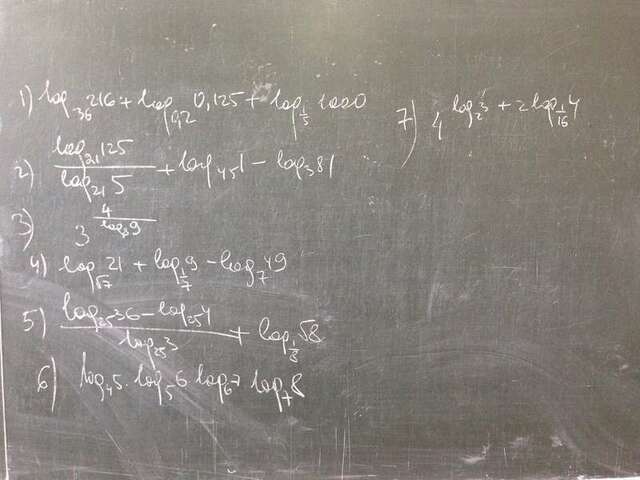 1) log₃₆ 216 + log₀,₂ 0,125 + log_{1/5} 1000
2) \frac{log₂₁ 125}{log₂₁ 5} + log₄₅ 1 − log₃ 81
3) 3^{\frac{4}{log₈ 9}}
4) log_{√7} 21 + log_{1/7} 9 − log₇ 49
5) \frac{log₂₅ 36 − log₂₅ 4}{log₂₅ 3} + log_{1/8} √8
6) log₄ 5 · log₅ 6 log₆ 7 log₇ 8
7) 4^{log₂ 3 + 2 log_{1/16} 4}